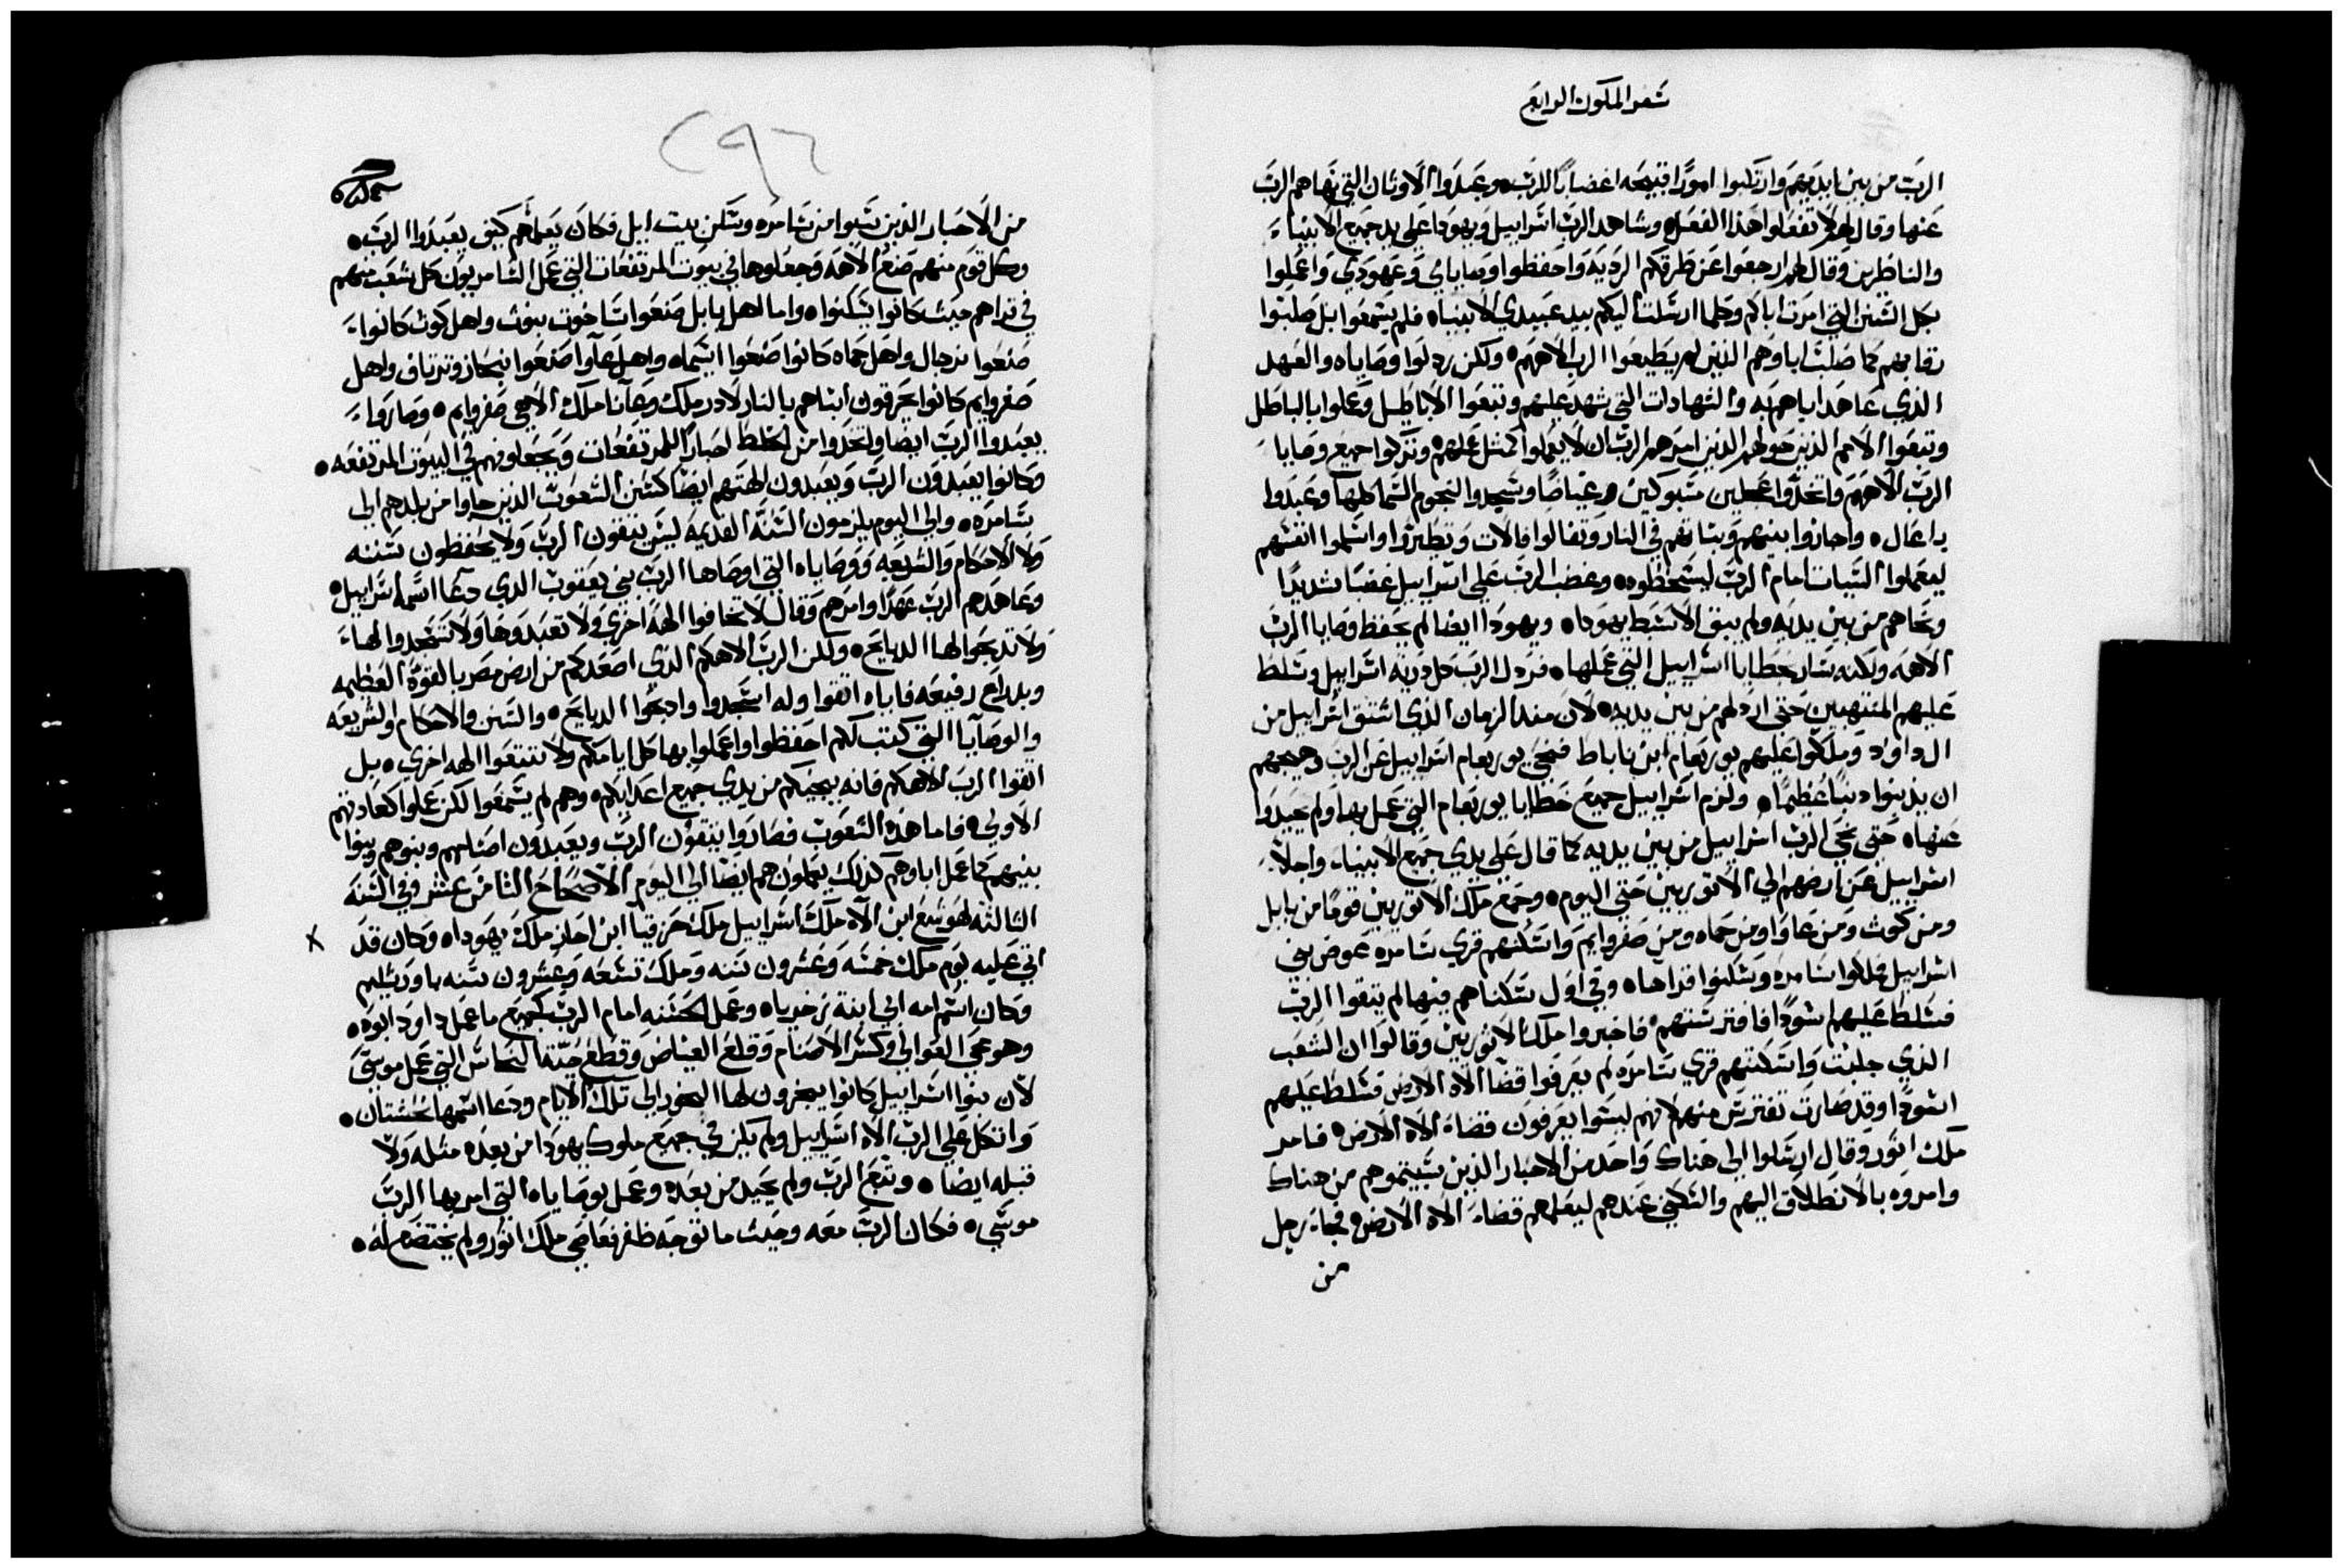 سفر الملوك الرابع
الرب من بين ايديهم وارتكبوا امورًا قبيحه اغضابًا للرب وعبدوا الاوثان التي نهاهم الرب
عنها وقال لهم لا تفعلوا هذا الفعل وشاهد الرب اسراييل ويهودا علي يد جميع الانبياء
والناظرين وقال لهم ارجعوا عن طرقكم الرديه واحفظوا وصاياي وعهودي واعملوا
بكل السنن التي امرت اباكم وكلما ارسلت اليكم بيد عبيدي الانبياه فلم يسمعوا بل صلبوا
رقابهم كما صلبت اباوهم الذين لم يطيعوا الرب الاههم ولكن ردلوا وصاياه والعهد
الذي عاهد اباهم به والشهادات التي شهد عليهم وتبعوا الاباطيل وعملوا بالباطل
وتبعوا الامم الذين حولهم الذين امرهم الرب ان لا يعملوا كمثل عملهم وتركوا جميع وصايا
الرب الاههم واتخدوا عجلين مسبوكين وغياضًا وسجدوا لنجوم السما كلها وعبدوا
باعال واجازوا بنيهم وبناتهم في النار وتفالوا فالات وتطيروا واسلموا انفسهم
ليعملوا السيات امام الرب ليسخطوه وغضب الرب علي اسراييل غضبًا شديدًا
ونحاهم من بين يديه ولم يبق الا سبط يهوداه ويهودا ايضا لم يحفظ وصايا الرب
الاهه ولكنه سار بخطايا اسراييل التي عملها فردل الرب كل دريه اسراييل وسلط
عليهم المنتهبين حتي اردلهم من بين يديه لان مند الزمان الذي اشتق اسراييل من
ال داوود وملكوا عليهم يوربعام ابن ناباط فنحي يوربعام اسراييل عن الرب وهيجهم
ان يدنبوا دنبًا عظيمًا ولزم اسراييل جميع خطايا يوربعام التي عمل بها ولم يحيدوا
عنها حتي نحي الرب اسراييل من بين يديه كما قال علي يدي جميع الانبياء واجلا
اسراييل عن ارضهم الي الاتوريين حتي اليوم وجمع ملك الاتوريين قومًا من بابل
ومن كوث ومن عاوا ومن حماه ومن صفروايم واسكنهم قري سامره عوض بني
اسراييل فملكوا سامره وسكنوا قراها وفي اول سكناهم فيها لم يتقوا الرب
فسلط عليهم اسودًا فافترستهم فاخبروا ملك الاثوريين وقالوا ان الشعب
الذي جلبت واسكنتهم قري سامره لم يعرفوا قضا الاه الارض فسلط عليهم
اسودًا وقد صارت تفترس منهم لانهم ليسوا يعرفون قضاء الاه الارض فامر
ملك اتور وقال ارسلوا الي هناك واحد من الاحبار الذين سبيتموهم من هناك
وامروه بالانطلاق اليهم والسكني عندهم ليعلمهم قضاء الاه الارض فجاء رجل
من
٢٩٦
من الاحبار الذين سبيوا من سامره وسكن بيت ايل فكان يعلمهم كيف يعبدوا الرب
وكل قوم منهم صنع الاهه وجعلوها في بيوت المرتفعات التي عمل السامريون كل شعب منهم
في قراهم حيث كانوا يسكنوا واما اهل بابل صنعوا ساخوت بنوث واهل كوث كانوا
صنعوا نرجال واهل حماه كانوا صنعوا اشيماه واهل عاوا صنعوا نبحاز وترتاق واهل
صفروايم كانوا يحرقون ابناهم بالنار لادرملك وعاناملك الاهي صفروايم وصاروا
يعبدوا الرب ايضا واتخدوا من اخلط احبارًا للمرتفعات ويجعلونهم في البيوت المرتفعه
وكانوا يعبدون الرب ويعبدون الهتهم ايضا كسنن الشعوب الذين جاوا من بلدهم الي
سامره والي اليوم يلزمون السنه القديمه ليس يتقون الرب ولا يحفظون سننه
ولا الاحكام والشريعه ووصاياه التي اوصاها الرب بني يعقوب الذي دعا اسمه اسراييل
وعاهدهم الرب عهدًا وامرهم وقال لا تخافوا الهه اخري ولا تعبدوها ولا تسجدوا لها
ولا تدبحوا لها الدبايح ولكن الرب الاهكم الذي اصعدكم من ارض مصر بالقوه العظيمه
وبدراع رفيعه فاياه اتقوا وله اسجدوا وادبحوا الدبايح والسنن والاحكام والشريعه
والوصايا التي كتب لكم احفظوا واعملوا بها كل ايامكم ولا تتبعوا الهه اخري بل
اتقوا الرب الاهكم فانه ينجيكم من يدي جميع اعدايكم وهم لم يسمعوا لكن عملوا كعادتهم
الاولي فاما هذه الشعوب فصاروا يتقون الرب ويعبدون اصنامهم وبنوهم وبنوا
بنيهم كما عمل اباوهم كذلك يعملون هم ايضا الي اليوم الاصحاح الثامن عشر وفي السنه
الثالثه لهوشع ابن الاه ملك اسراييل ملك حزقيا ابن احاز ملك يهوداه وكان قد
اتي عليه يوم ملك خمسه وعشرون سنه وملك تسعه وعشرون سنه باورشليم
وكان اسم امه ابي ابنة زخرياه وعمل الحسنه امام الرب كجميع ما عمل داود ابوه
وهو محي العوالي وكسر الاصنام وقلع الغياض وقطع حية النحاس التي عمل موسي
لان بنوا اسراييل كانوا يبخرون لها البخور الي تلك الايام ودعا اسمها نحشتان
واتكل علي الرب الاه اسراييل ولم يكن في جميع ملوك يهودا من بعده مثله ولا
قبله ايضا وتبع الرب ولم يحيد من بعده وعمل بوصاياه التي امر بها الرب
موسي فكان الرب معه وحيث ما توجه ظفر فعاصي ملك اثور ولم يختضع له